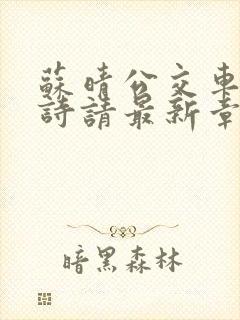 蘇晴公交車
詩請最新章
暗黑森林